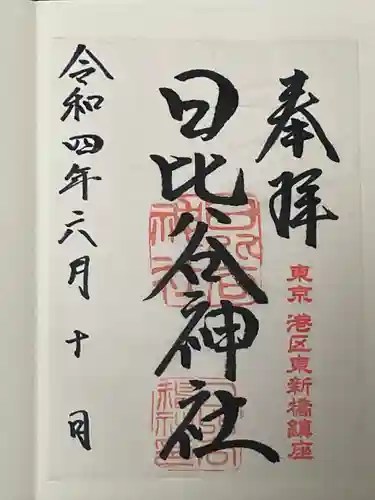 奉拝
東京 港区東新橋鎮座
日比谷神社
令和四年六月十日